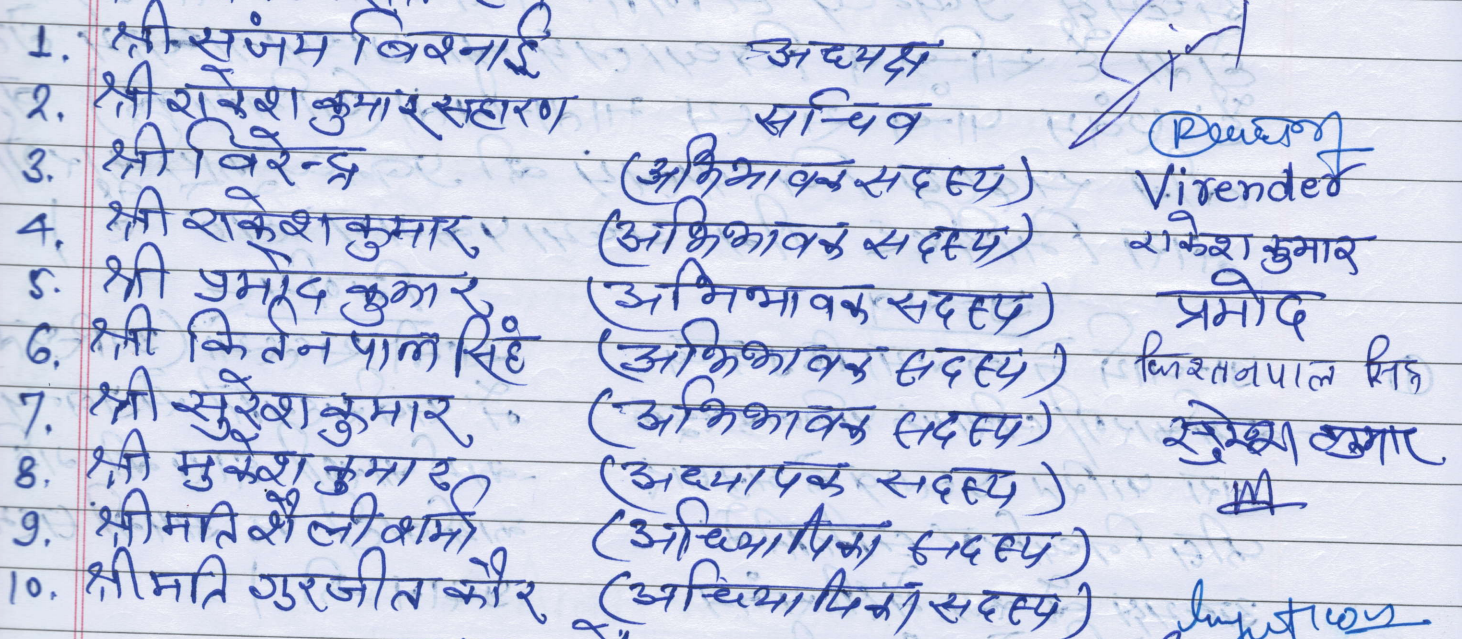 1. श्री संजम बिश्नोई अध्यक्ष
2. श्री राकेश कुमार सहारण सचिव
3. श्री विरेन्द्र (अभिभावक सदस्य) Virender
4. श्री राकेश कुमार (अभिभावक सदस्य) राकेश कुमार
5. श्री प्रमोद कुमार (अभिभावक सदस्य) प्रमोद
6. श्री किर्तन पाल सिंह (अभिभावक सदस्य) सिंह
7. श्री सुरेश कुमार (अभिभावक सदस्य) सुरेश कुमार
8. श्री मुकेश कुमार (अध्यापक सदस्य)
9. श्रीमति शैली शर्मा (अध्यापिका सदस्य)
10. श्रीमति गुरजीत कौर (अध्यापिका सदस्य)